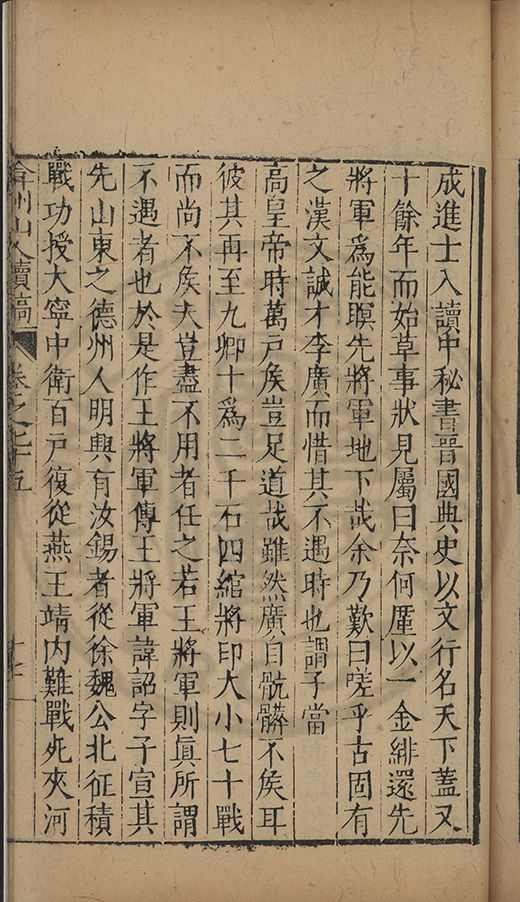 成進士入讀中秘書晉國典史以文行名天下蓋又
十餘年而始草事狀見屬曰奈何廑以一金緋還先
將軍為能瞑先將軍地下哉余乃歎曰嗟乎古固有
之漢文誠才李廣而惜其不遇時也謂子當
高皇帝時萬戶矦豈足道哉雖然廣自骯髒不矦耳
彼其再至九卿十為二千石四綰將印大小七十戰
而尚不矦夫豈盡不用者任之若王將軍則眞所謂
不遇者也於是作王將軍傳王將軍諱詔字子宣其
先山東之德州人明興有汝錫者從徐魏公北征積
戰功授大寧中衛百戶復從燕王靖內難戰死夾河
弇州山人續稿 卷之七十五 十一